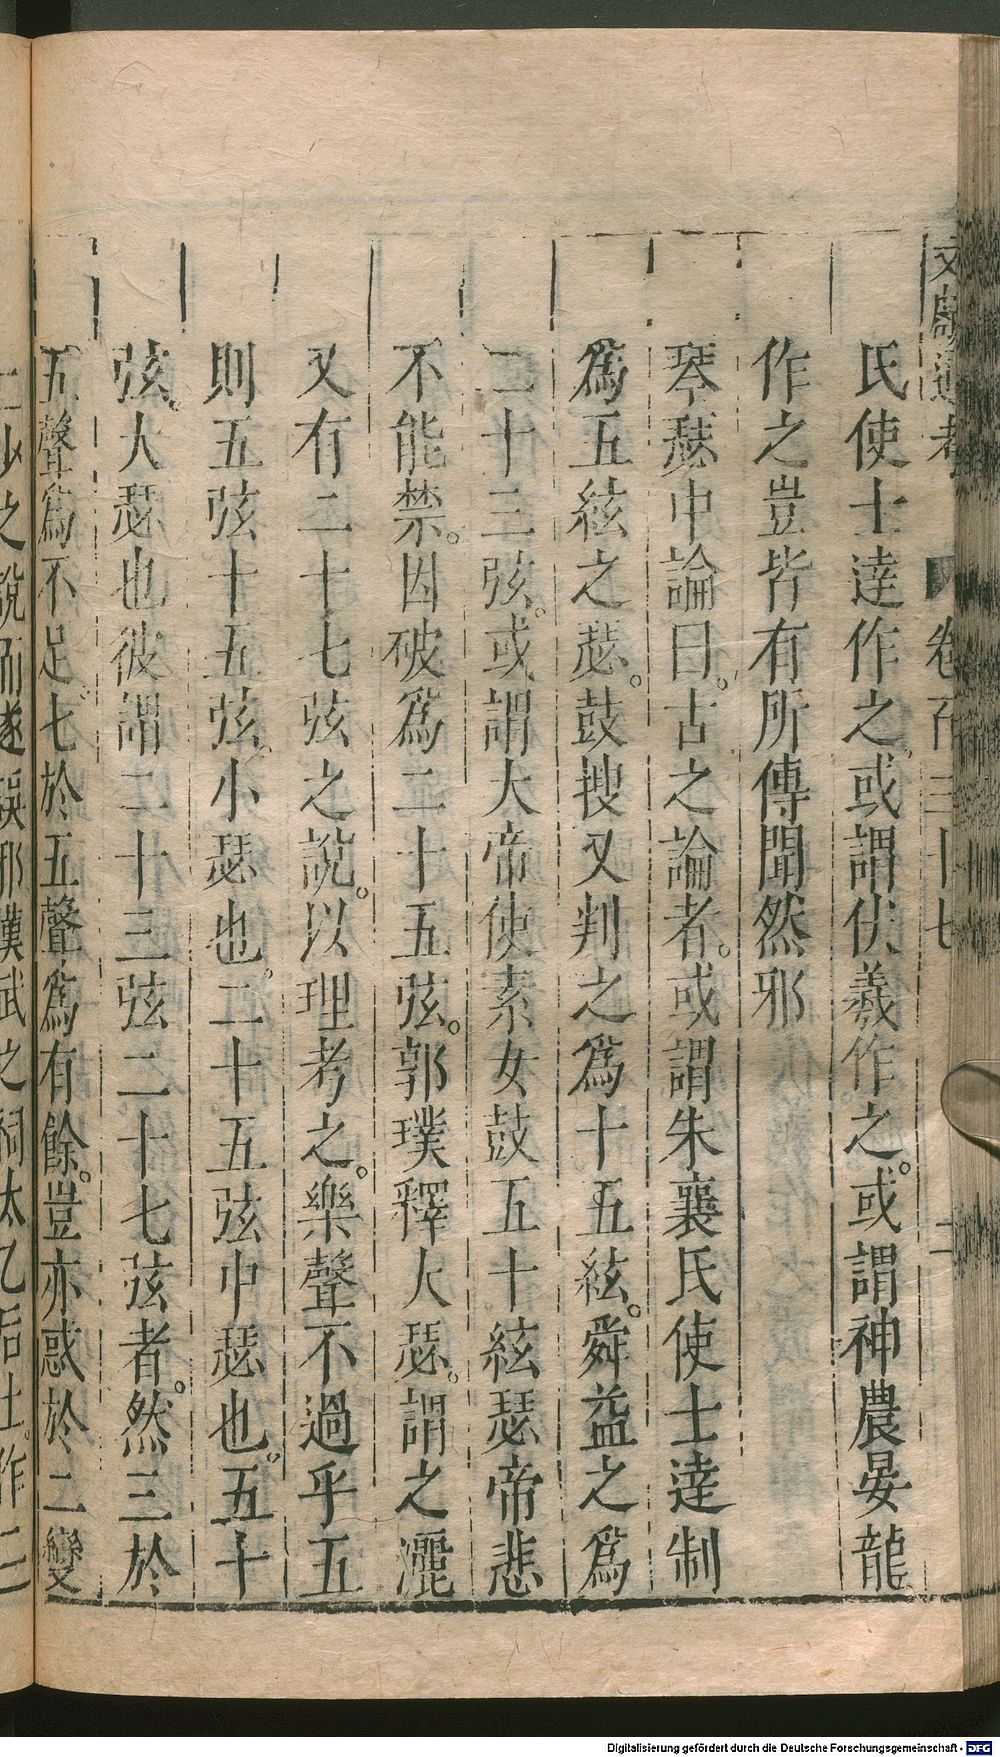 文獻通考 卷百三十七 二
氏使士逹作之或謂伏羲作之。或謂神農晏龍
作之豈皆有所傳聞然邪
琴瑟中論曰。古之論者。或謂朱襄氏使士逹制
爲五絃之瑟。鼓叟又判之爲十五絃。舜益之爲
二十三弦。或謂大帝使素女鼓五十絃瑟帝悲
不能禁。因破爲二十五弦。郭璞釋大瑟。謂之灑
又有二十七弦之說。以理考之。樂聲不過乎五
則五弦十五弦。小瑟也。二十五弦中瑟也。五十
弦。大瑟也彼謂二十三弦二十七弦者。然三於
五聲爲不足。七於五聲爲有餘。豈亦惑於二變
二少之說而遂誤邪漢武之祠太乙后土。作二
Digitalisierung gefördert durch die Deutsche Forschungsgemeinschaft - DFG